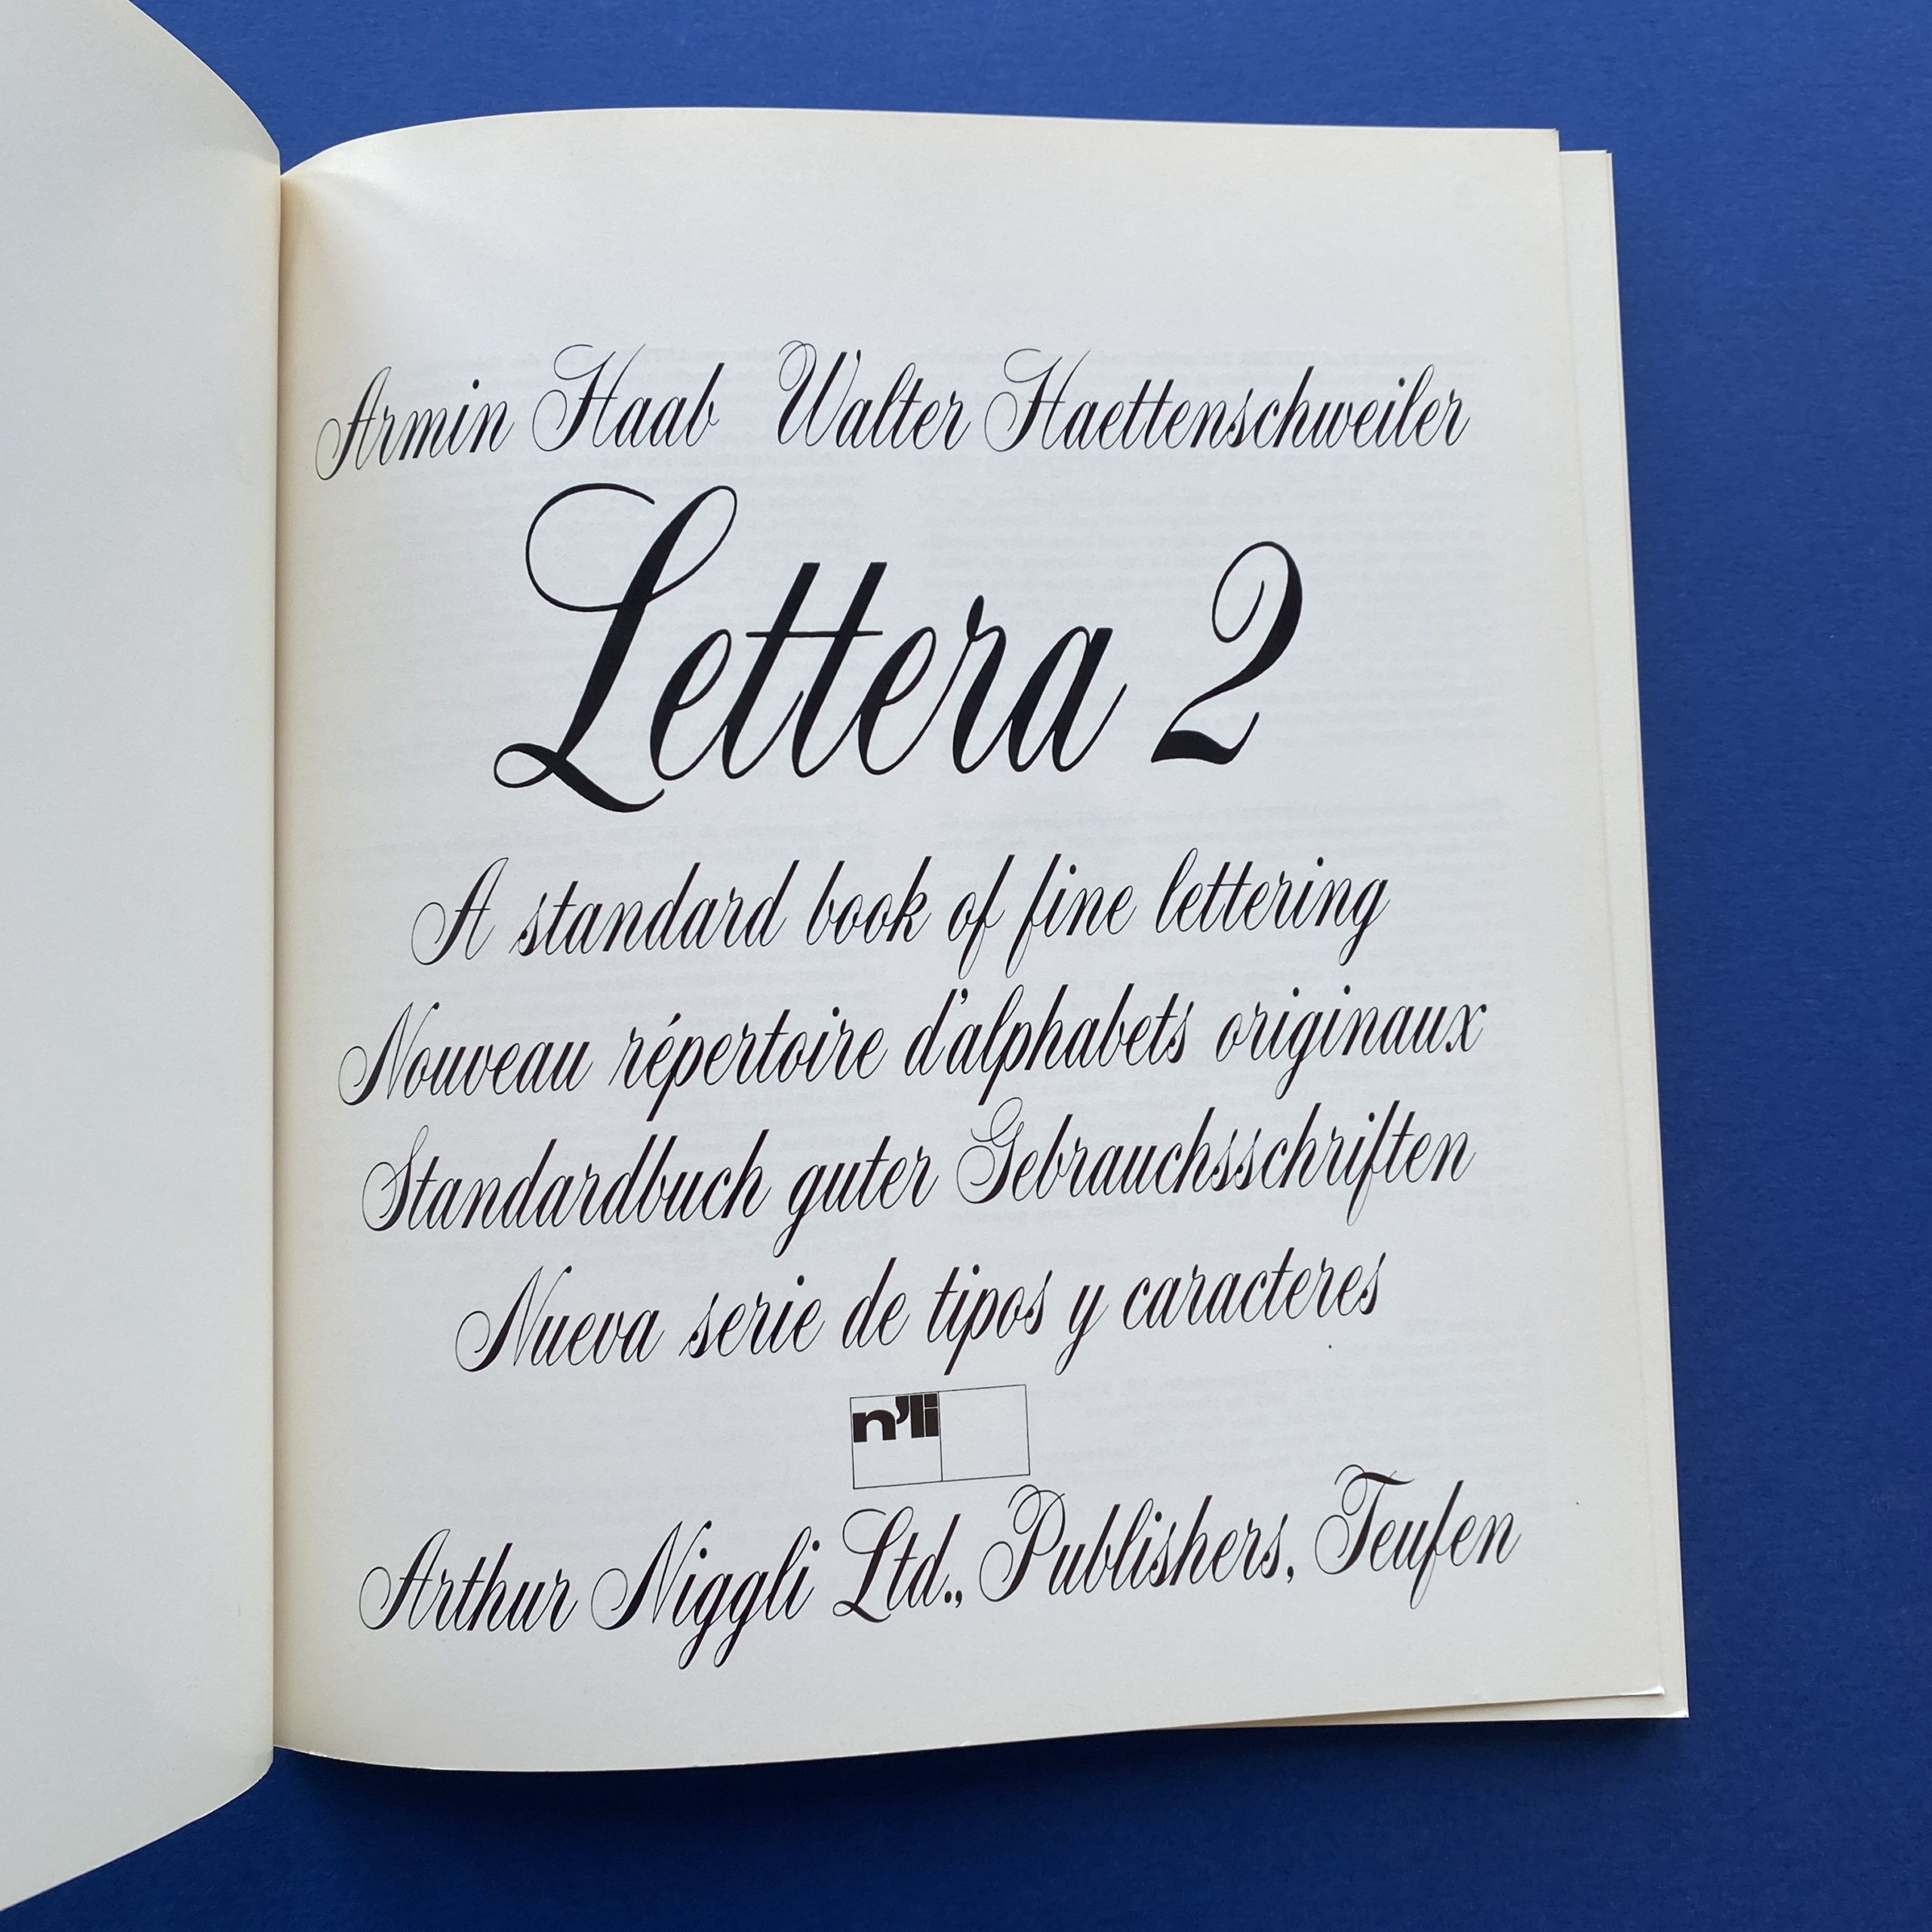 Armin Haab Walter Haettenschweiler
Lettera 2
A standard book of fine lettering
Nouveau répertoire d'alphabets originaux
Standardbuch guter Gebrauchsschriften
Nueva serie de tipos y caracteres
n'li
Arthur Niggli Ltd., Publishers, Teufen